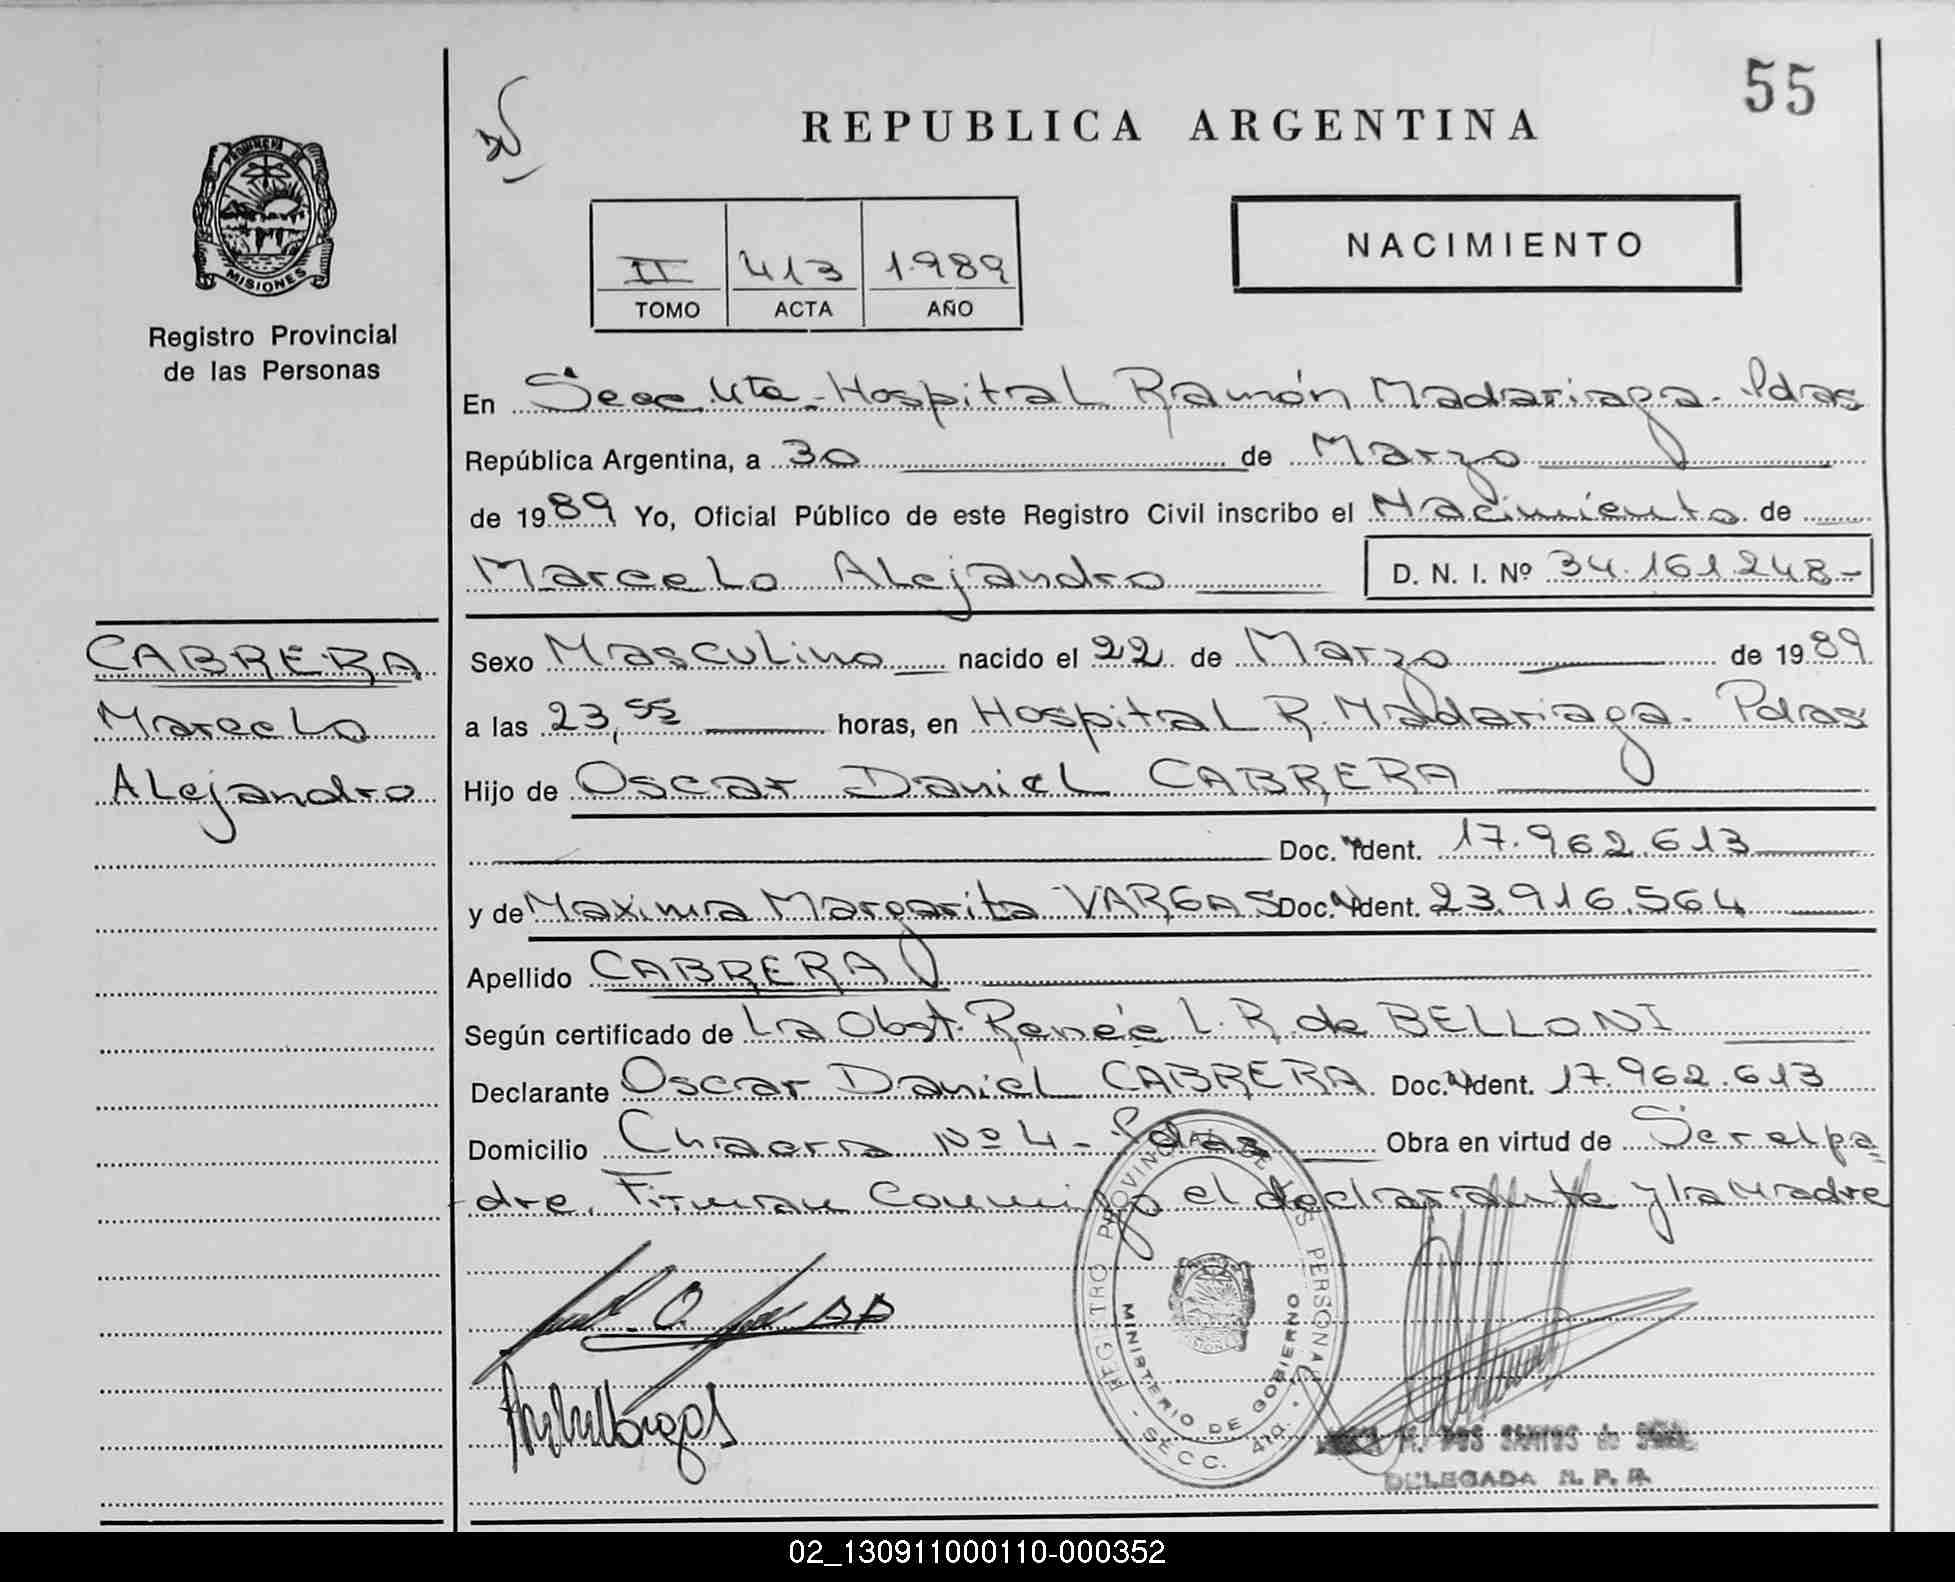 55
REPUBLICA ARGENTINA
PROVINCIA DE
MISIONES
Registro Provincial
de las Personas
NACIMIENTO
II 413 1.989
TOMO ACTA AÑO
En Secc. 4ta. - Hospital Ramón Madariaga - Pdas
República Argentina, a 30 de Marzo
de 1989 Yo, Oficial Público de este Registro Civil inscribo el Nacimiento de
Marcelo Alejandro D. N. I. Nº 34.161.248-
CABRERA
Marcelo
Alejandro
Sexo Masculino nacido el 22 de Marzo de 1989
a las 23,55 horas, en Hospital R. Madariaga - Pdas
Hijo de Oscar Daniel CABRERA
Doc. Ident. 17.962.613
y de Maxima Margarita VARGAS Doc. Ident. 23.916.564
Apellido CABRERA
Según certificado de La Obst. Renée L. R. de BELLONI
Declarante Oscar Daniel CABRERA Doc. Ident. 17.962.613
Domicilio Chacra Nº 4 - Pdas Obra en virtud de Ser el pa
dre. Firman Conmigo el declarante y la Madre
REGISTRO PROVINCIAL DE LAS PERSONAS
MINISTERIO DE GOBIERNO
- SECC. 4ta. -
M. DOS SANTOS de
DELEGADA R. P. P.
02_130911000110-000352